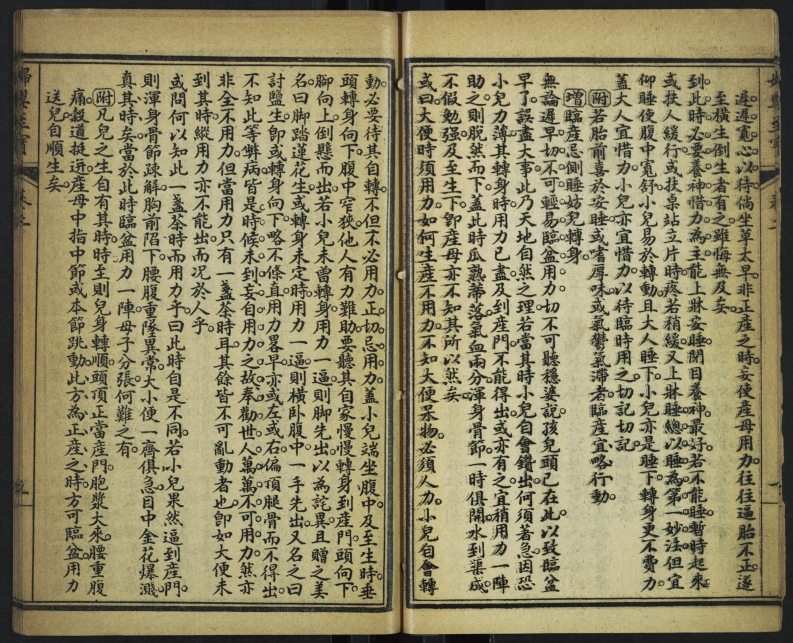 遲遲寬心以待倘坐草太早非正產之時妄使產母用力往往逼胎不正遂
至橫生倒生者有之雖悔無及矣
到此時必要養神惜力為主能上牀安睡閉目養神最好若不能睡暫時起來
或扶人緩行或扶桌站立片時疼若稍緩又上牀睡總以睡為第一妙法但宜
仰睡使腹中寬舒小兒易於轉動且大人睡下小兒亦是睡下轉身更不費力
蓋大人宜惜力小兒亦宜惜力以待臨時用之切記切記
附若胎前喜於安睡或嗜厚味或氣鬱氣滯者臨產宜略行動
增臨產忌側睡妨兒轉身
無論遲早切不可輕易臨盆用力切不可聽穩婆說孩兒頭已在此以致臨盆
早了誤盡大事此乃天地自然之理若當其時小兒自會鑽出何須著急因恐
小兒力薄其轉身時用力已盡及到產門不能得出或亦有之宜稍用力一陣
助之則脫然而下蓋此時瓜熟蒂落氣血兩分渾身骨節一時俱開水到渠成
不假勉強及至生下卽產母亦不知其所以然矣
或曰大便時須用力如何生產不用力不知大便呆物必須人力小兒自會轉
動必要待其自轉不但不必用力正切忌用力蓋小兒端坐腹中及至生時垂
頭轉身向下腹中窄狹他人有力難助要聽其自家慢慢轉身到產門頭向下
腳向上倒懸而出若小兒未曾轉身用力一逼則腳先出以為詫異且贈之美
名曰腳踏蓮花生或轉身未定時用力一逼則橫臥腹中一手先出又名之曰
討鹽生卽或轉身向下略不條直用力畧早亦或左或右偏頂腿骨而不得出
不知此等弊病皆是時候未到妄自用力之故奉勸世人萬萬不可用力然亦
非全不用力但當用力只有一盞茶時耳其餘皆不可亂動者也卽如大便未
到其時縱用力亦不能出而況於人乎
或問何以知此一盞茶時而用力乎曰此時自是不同若小兒果然逼到產門
則渾身骨節疎解胸前陷下腰腹重墜異常大小便一齊俱急目中金花爆濺
真其時矣當於此時臨盆用力一陣母子分張何難之有
附凡兒之生自有其時時至則兒身轉順頭頂正當產門胞漿大來腰重腹
痛穀道挺迸產母中指中節或本節跳動此方為正產之時方可臨盆用力
送兒自順生矣